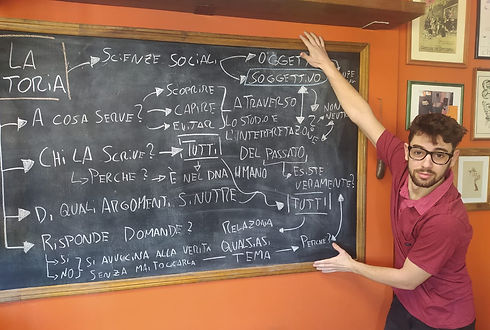 LA
TORIA
SCIENZE SOCIALI
OGGETT
SOGGETTIVO
A COSA SERVE?
SCOPRIRE
CAPIRE
EVITAR
ATTRAVERSO
LO STUDIO E
L'INTERPRETAZIO
DEL PASSATO,
NON
NEUTR
CHI LA SCRIVE?
TUTTI
PERCHE?
È NEL DNA UMANO
ESISTE
VERAMENTE?
DI QUALI ARGOMENTI SI NUTRE
TUTTI
RISPONDE DOMANDE?
SI
NO
SI AVVICINA ALLA VERITA
SENZA MAI TOCCARLA
RELAZONA
QUALSIASI
TEMA
PERCHE?